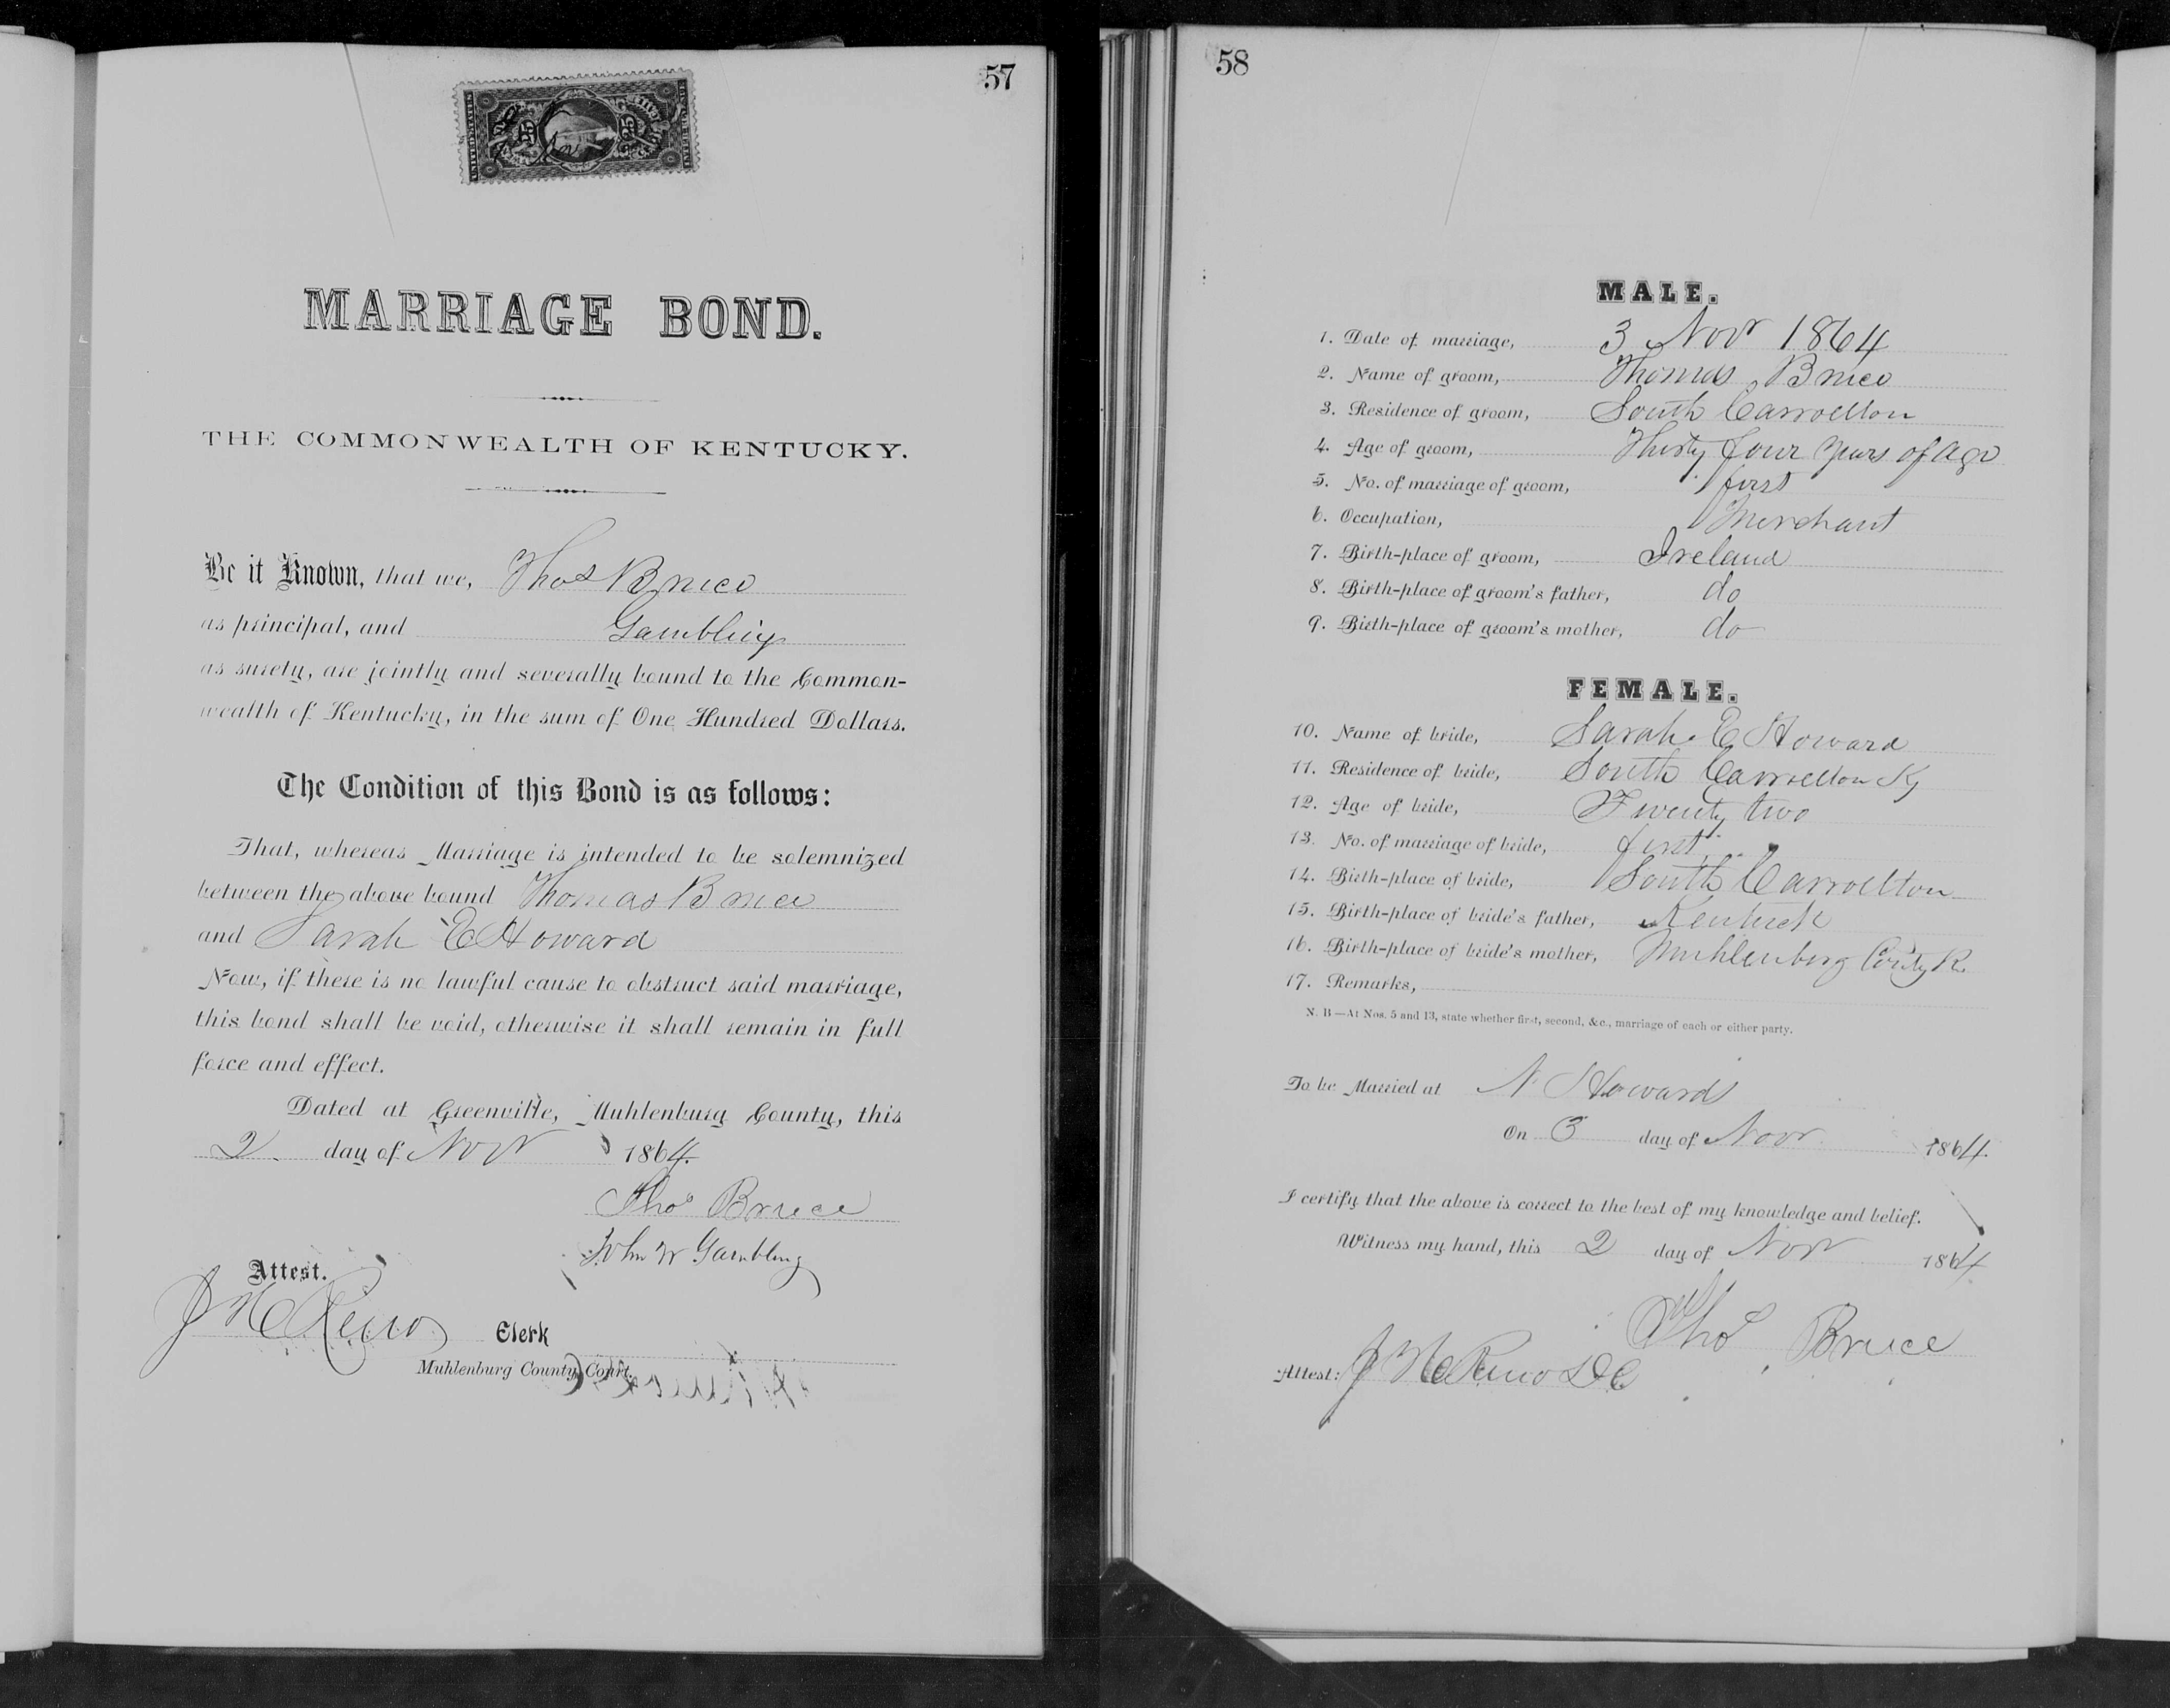 57
25 25
MARRIAGE BOND.
THE COMMONWEALTH OF KENTUCKY.
Be it Known, that we, Thos Bruce
as principal, and Gambling
as surety, are jointly and severally bound to the Common-
wealth of Kentucky, in the sum of One Hundred Dollars.
The Condition of this Bond is as follows:
That, whereas Marriage is intended to be solemnized
between the above bound Thomas Bruce
and Sarah E Howard
Now, if there is no lawful cause to obstruct said marriage,
this bond shall be void, otherwise it shall remain in full
force and effect.
Dated at Greenville, Muhlenburg County, this
2 day of Novr 1864.
Thos Bruce
John W Gambling
Attest.
J H Reno Clerk
Muhlenburg County Court.
58
MALE.
1. Date of marriage, 3 Novr 1864
2. Name of groom, Thomas Bruce
3. Residence of groom, South Carrollton
4. Age of groom, Thirty four Years of Age
5. No. of marriage of groom, first
6. Occupation, Merchant
7. Birth-place of groom, Ireland
8. Birth-place of groom's father, do
9. Birth-place of groom's mother, do
FEMALE.
10. Name of bride, Sarah E Howard
11. Residence of bride, South Carrollton Ky
12. Age of bride, Twenty two
13. No. of marriage of bride, first
14. Birth-place of bride, South Carrollton
15. Birth-place of bride's father, Kentuck
16. Birth-place of bride's mother, Muhlenburg County K
17. Remarks,
N. B—At Nos. 5 and 13, state whether first, second, &c., marriage of each or either party.
To be Married at N Howards
On 3 day of Novr 1864.
I certify that the above is correct to the best of my knowledge and belief.
Witness my hand, this 2 day of Novr 1864
Thos Bruce
Attest: J H Reno DC